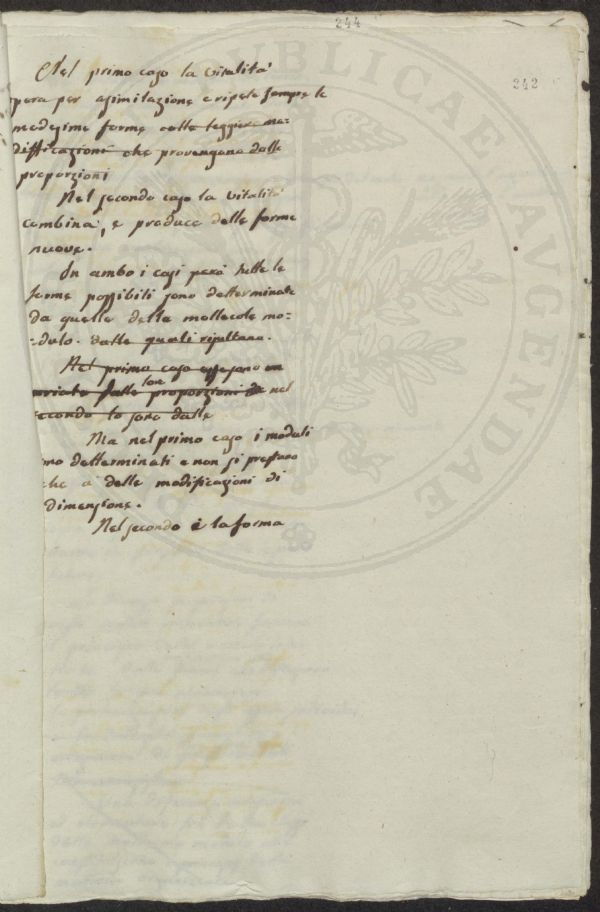 244
242
Nel primo caso la vitalità
pera per asimilazione e ripete sempre le
medesime forme colle leggiere mo=
difficazioni che provengono dalle
proporzioni
Nel secondo caso la vitalità
combina, e produce delle forme
nuove.
In ambo i casi però tutte le
forme possibili sono detterminate
da quelle della mollecole mo=
=dulo. dalle quali risultano.
Nel primo caso esse sono
variate dalle proporzioni nel
secondo lo sono dalle
Ma nel primo caso i moduli
ono detterminati e non si prestano
che a delle modificazioni di
dimensione.
Nel secondo è la forma
PUBLICAE AUGENDAE